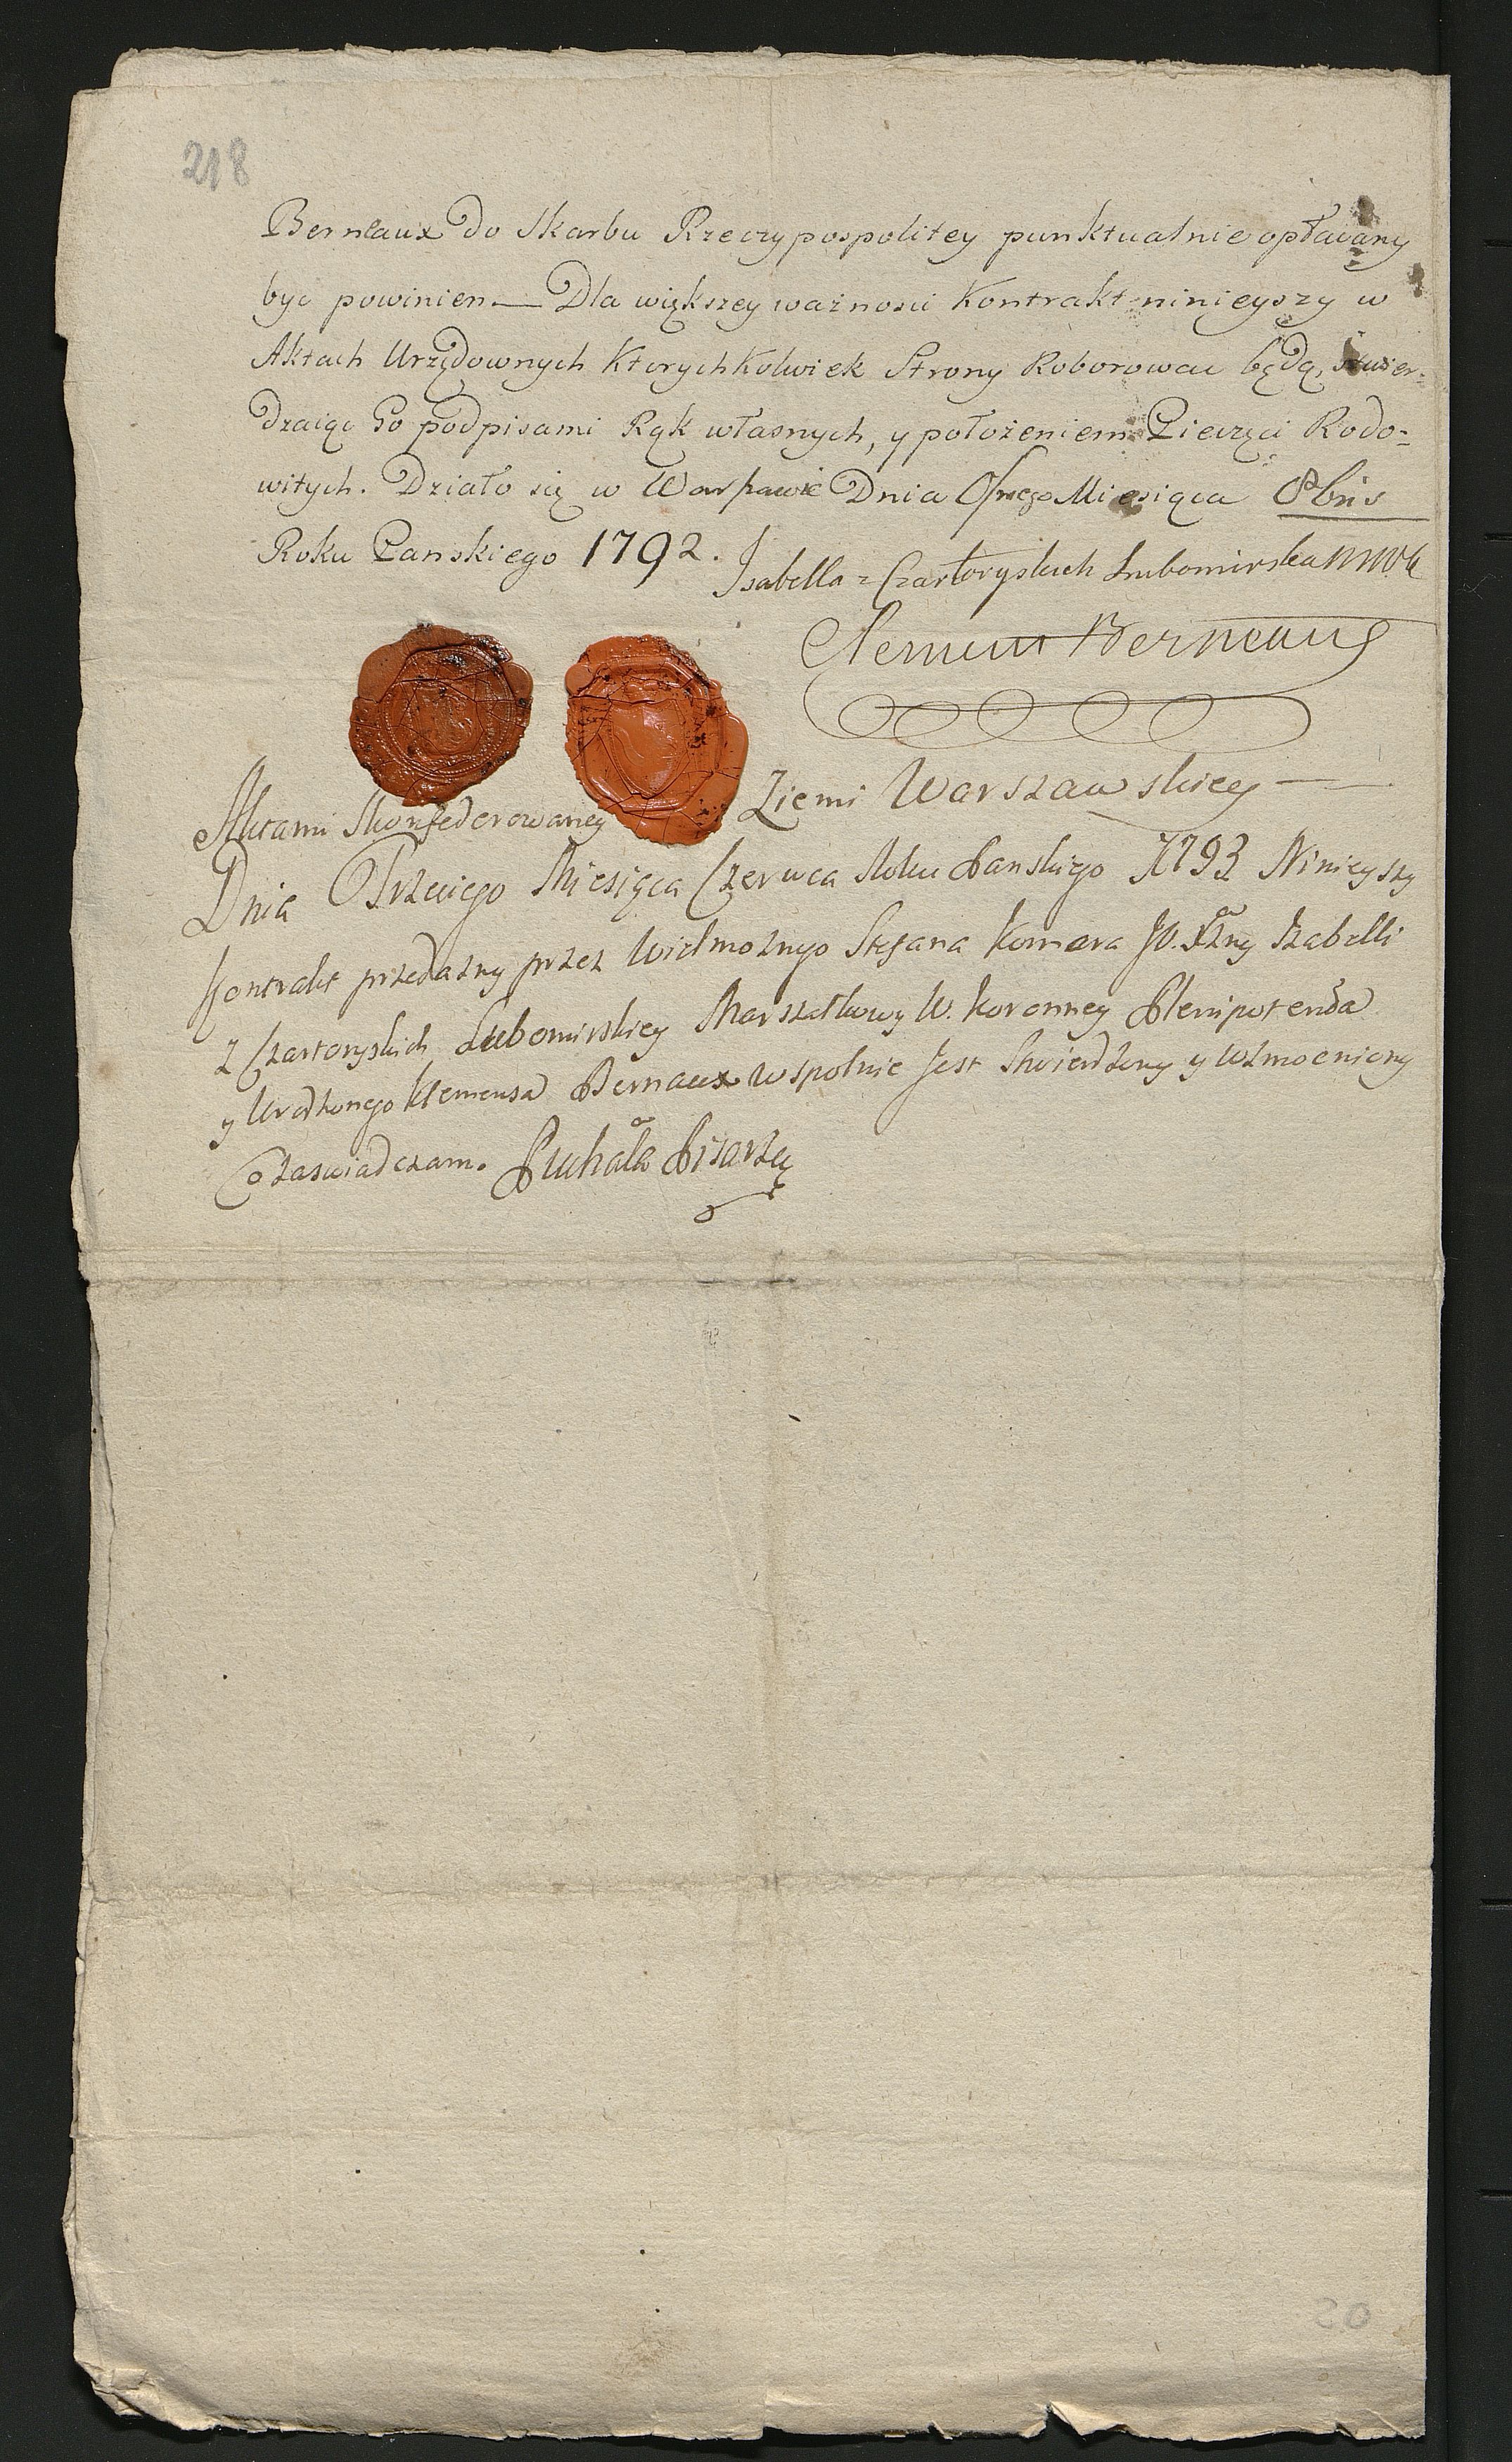 218
Berneaux do Skarbu Rzeczypospolitey punktualnie opłacany
byc powinien. — Dla większey ważnosci Kontrakt ninieyszy w
Aktach Urzędownych ktorychkolwiek Strony Roborowac będą, stwier-
dzaiąc Go podpisami Rąk własnych, y położeniem Pieczęci Rodo-
witych. Działo się w Warszawie Dnia Osmego Miesiąca 8bris
Roku Panskiego 1792.
Isabella z Czartoryskich Lubomirska MWK
Clement Berneaux
Aktami Skonfederowaney Ziemi Warszawskiey —
Dnia Trzeciego Miesiąca Czerwca Roku Panskiego 1793 Ninieyszy
Kontrakt przedażny przez Wielmożnego Stefana Komara JO. Xżny Izabelli
z Czartoryskich Lubomirskiey Marszałkowy W. Koronney Plenipotenta
y Urodzonego Klemensa Bernaux wspolnie Jest Stwierdzony y Wzmocniony
Co zaswiadczam. Puchała Pisarz
20